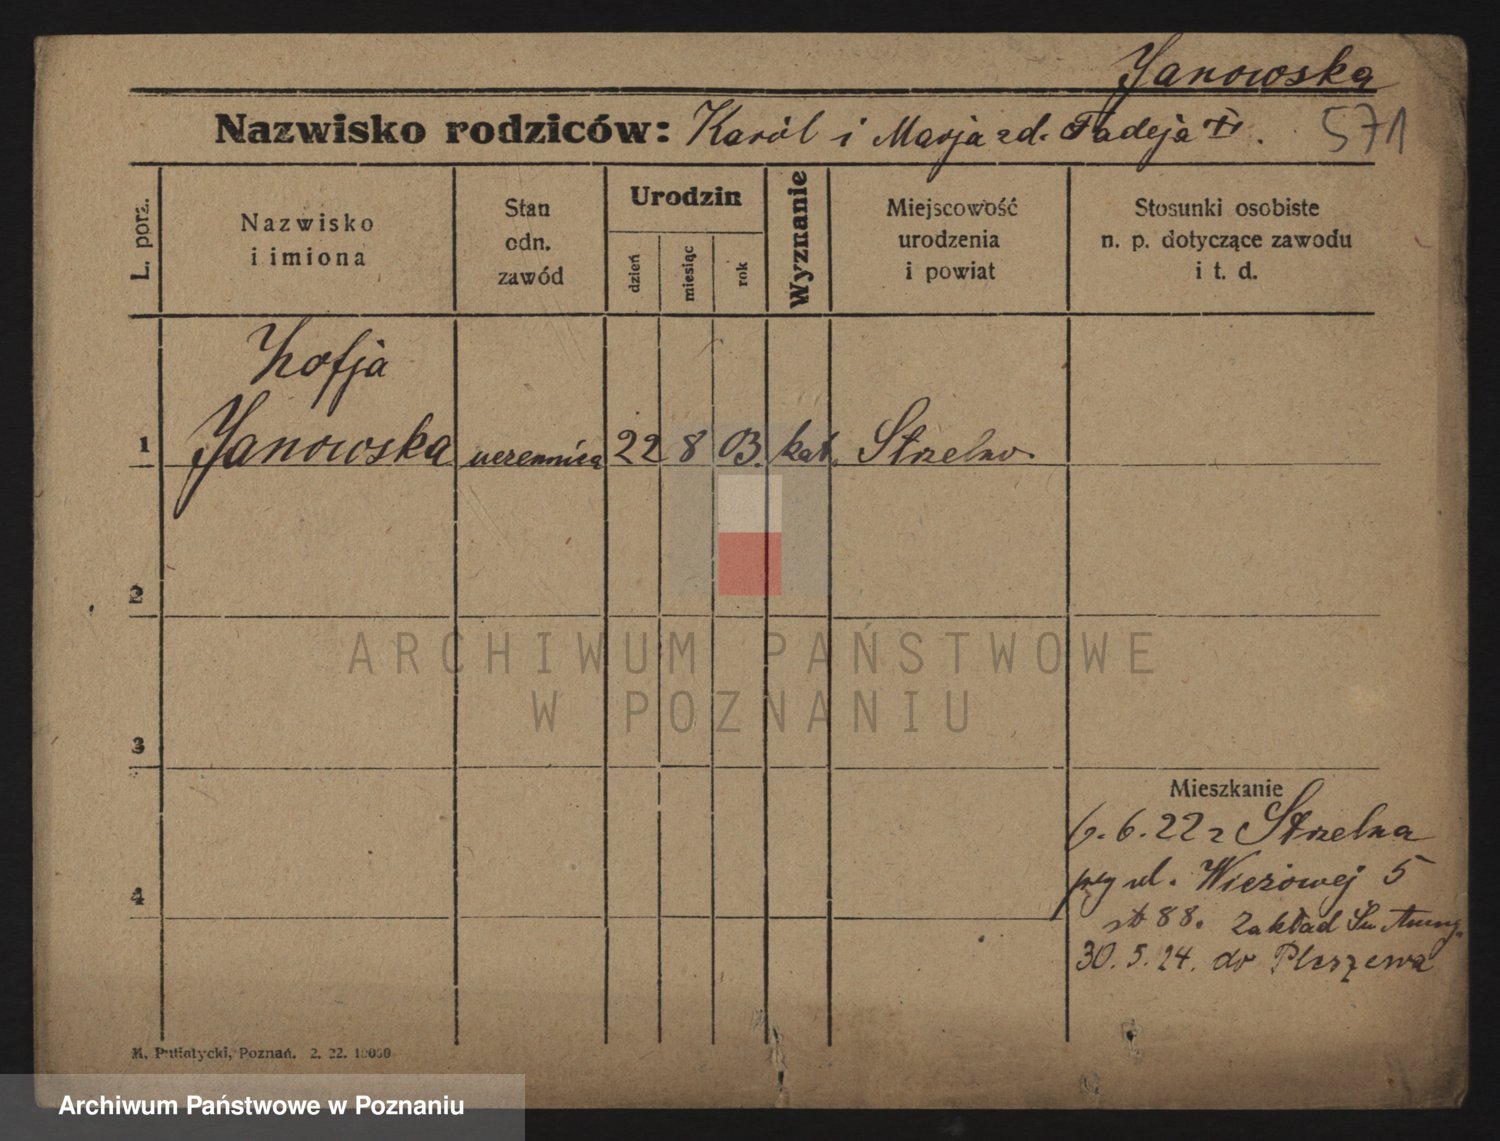 Janowska
Nazwisko rodziców: Karól i Marja zd. Tadeja
571
L. porz.
Nazwisko
i imiona
Stan
odn.
zawód
Urodzin
dzień
miesiąc
rok
Wyznanie
Miejscowość
urodzenia
i powiat
Stosunki osobiste
n. p. dotyczące zawodu
i t. d.
Zofja
1 Janowska uczennica 22 8 03. kat. Strzelno
2
ARCHIWUM PAŃSTWOWE
W POZNANIU
3
Mieszkanie
6. 22 z Strzelna
przy ul. Wieżowej 5
4
88. Zakład Św
30. 5. 24. do Pleszewa
K. Putiatycki, Poznań. 2. 22. 10000
Archiwum Państwowe w Poznaniu